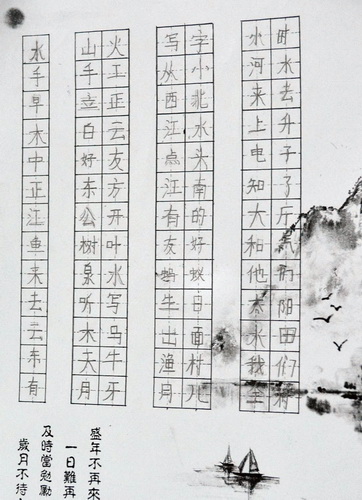 时水去升子了斤气们阳田们将
小河来上电知大和他太水我主
字小北水头南的好蚁白面村儿
写从西江点江有友蚂牛出渔月
火工正云友方开叶水写马牛牙
山手立白好东公树泉听木天月
水手早木中正江鱼来去云东有
盛年不再來
一日難再
及時當勉勵
歲月不待